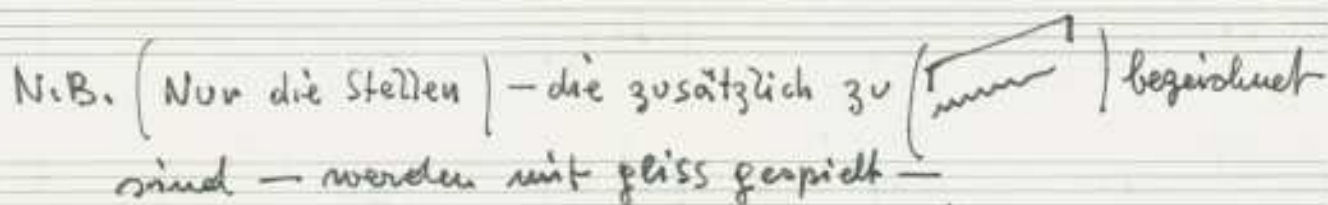 N.B. (Nur die Stellen) – die zusätzlich zu ( ) bezeichnet
sind – werden mit gliss gespielt –